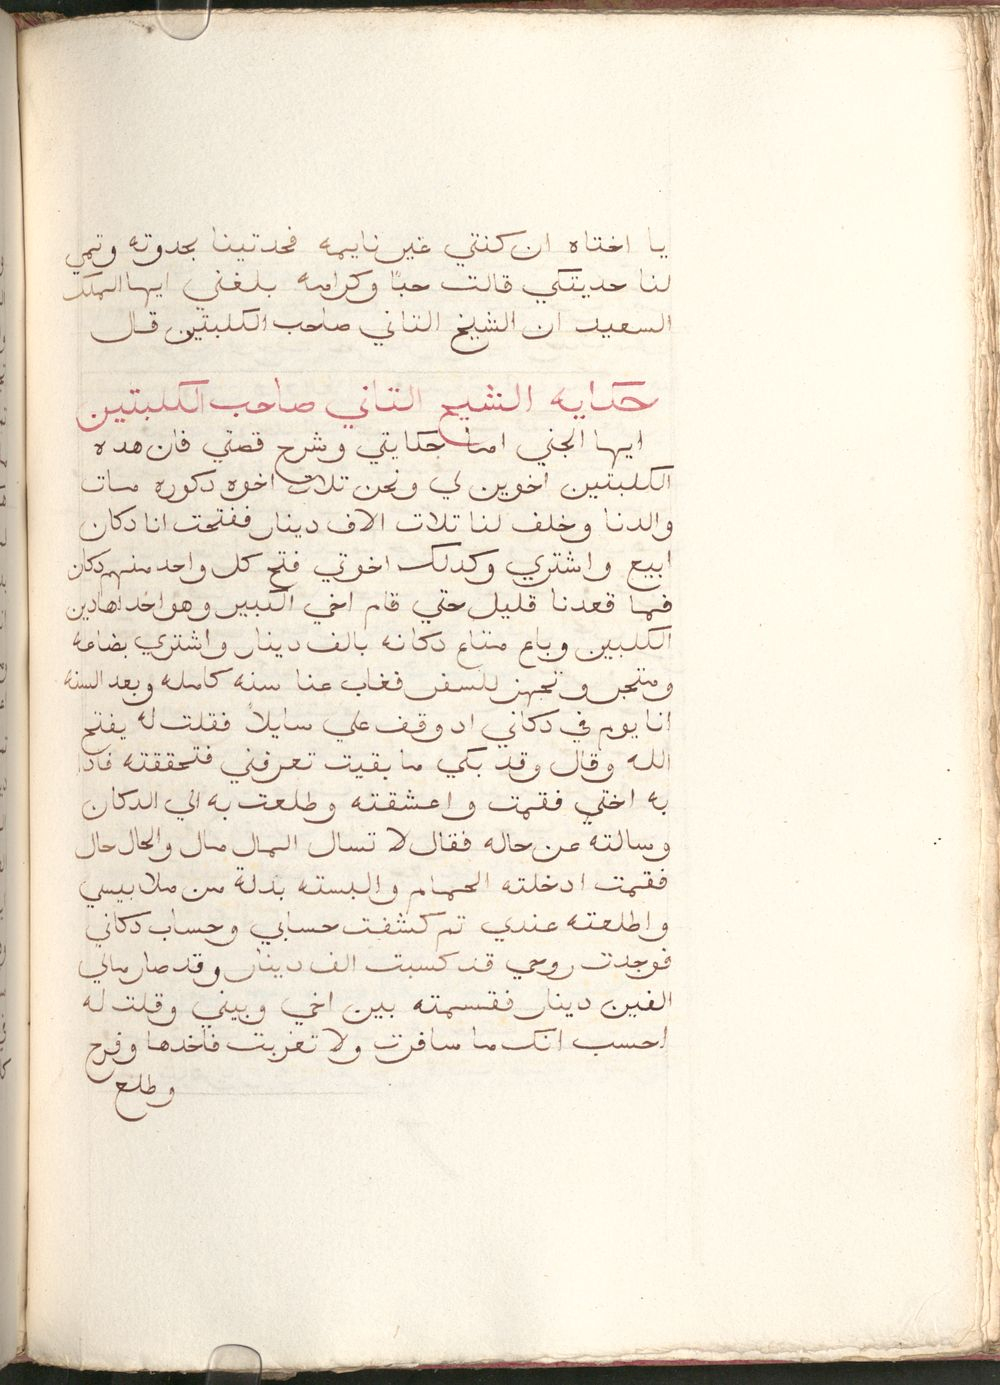 يا اختاه ان كنتي غير نايمه فحدتينا بحدوته وتمي
لنا حديتكي قالت حبًا وكرامه بلغني ايها الملك
السعيد ان الشيخ التاني صاحب الكلبتين قال
حكايه الشيخ التاني صاحب الكلبتين
ايها الجني اما حكايتي وشرح قصتي فان هده
الكلبتين اخوين لي ونحن تلات اخوه دكوره مات
والدنا وخلف لنا تلات الاف دينار ففتحت انا دكان
ابيع واشتري وكدلك اخوتي فتح كل واحد منهم دكان
فما قعدنا قليل حتي قام اخي الكبير وهو احد اهادين
الكلبين وباع متاع دكانه بالف دينار واشتري بضاعه
ومتجر وتجهز للسفر فغاب عنا سنه كامله وبعد السنه
انا يوم في دكاني اد وقف علي سايلاً فقلت له يفتح
الله وقال وقد بكي ما بقيت تعرفني فتحققته فادا
به اختي فقمت واعشقته وطلعت به الي الدكان
وسالته عن حاله فقال لا تسال المال مال والحال حال
فقمت ادخلته الحمام والبسته بدلة من ملابيسي
واطلعته عندي تم كشفت حسابي وحساب دكاني
فوجدت روحي قد كسبت الف دينار وقد صار مالي
الفين دينار فقسمته بين اخي وبيني وقلت له
احسب انك ما سافرت ولا تغربت فاخدها وفرح
وطلع